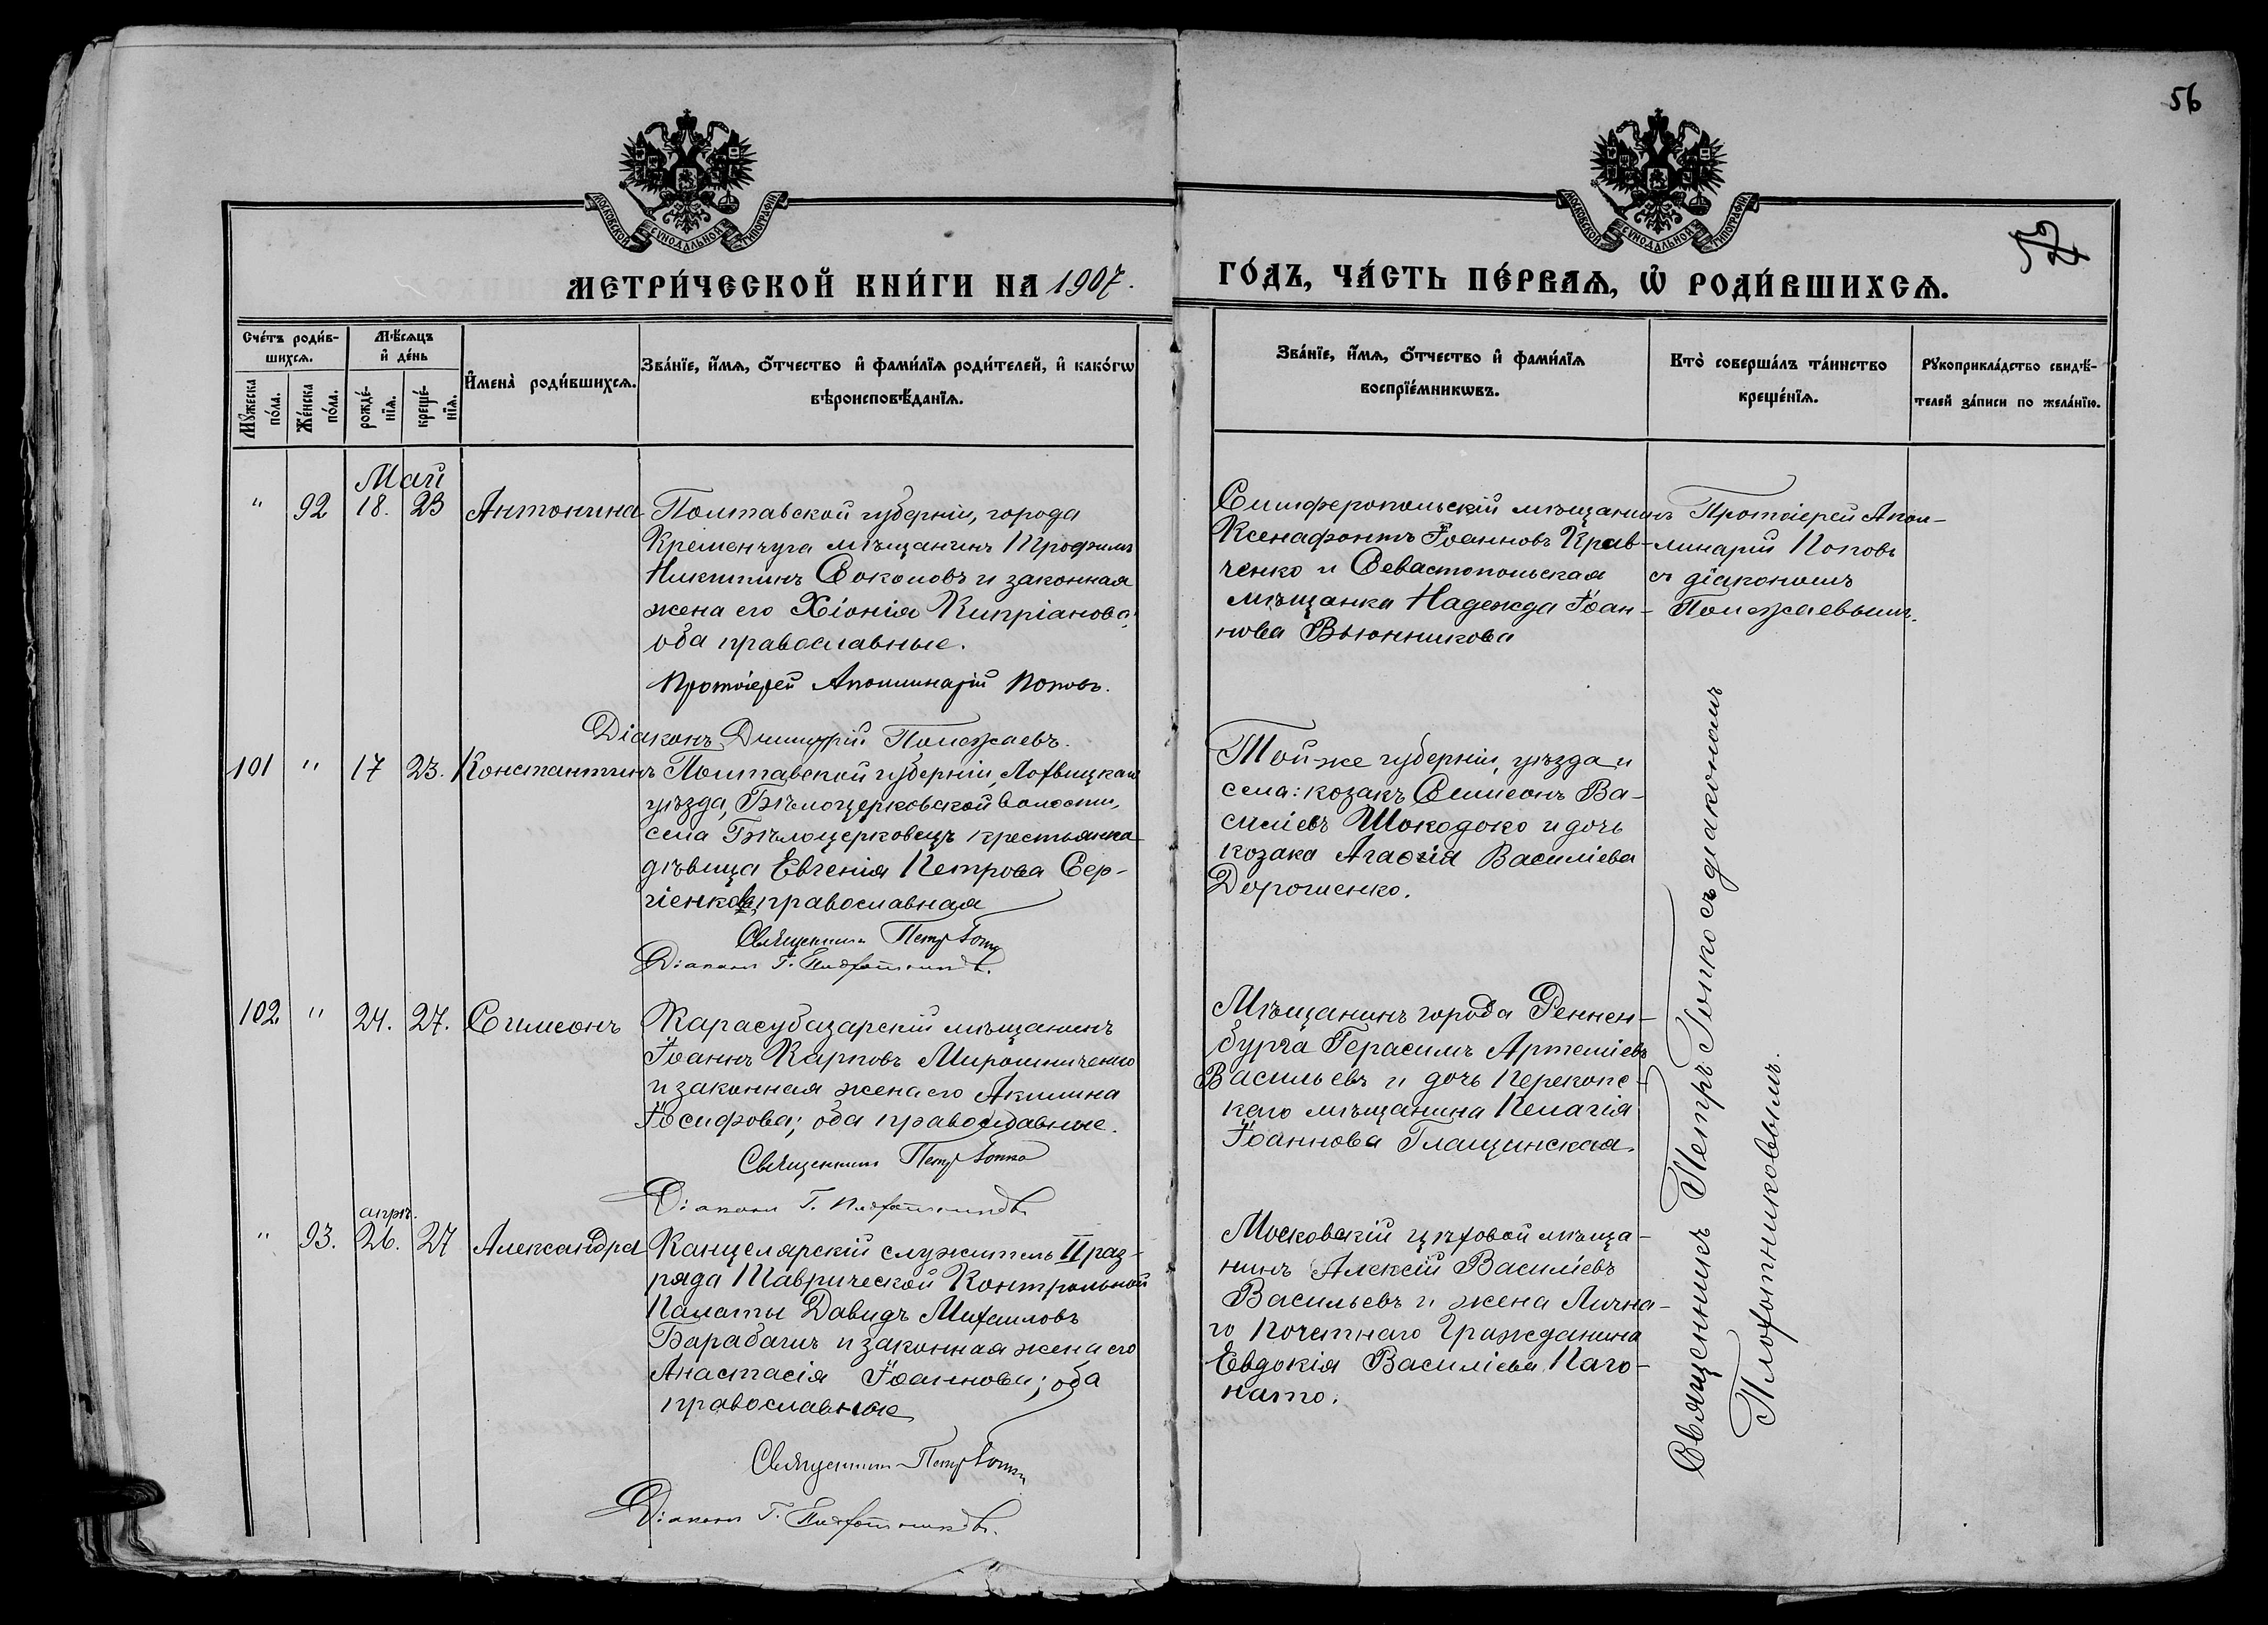 56
МОСКОВСКОЙ СУНОДАЛЬНОЙ ТИПОГРАФІИ
МОСКОВСКОЙ СУНОДАЛЬНОЙ ТИПОГРАФІИ
МЕТРИ́ЧЕСКОЙ КНИ́ГИ НА 1907.
ГО́ДЪ, ЧА́СТЬ ПЕ́РВАѦ, Ѡ҆ РОДИ́ВШИХСѦ.
Сче́тъ роди́в-
шихсѧ.
Мꙋ́жеска по́ла.
Же́нска по́ла.
Мѣ́сѧцъ
и҆ де́нь
рожде́-
нїѧ.
креще́-
нїѧ.
И҆мена̀ роди́вшихсѧ.
Зва́нїе, и҆́мѧ, ѻ҆́тчество и҆ фами́лїѧ роди́телей, и҆ како́гѡ
вѣроисповѣ́данїѧ.
Зва́нїе, и҆́мѧ, ѻ҆́тчество и҆ фами́лїѧ
воспрїе́мникѡвъ.
Кто̀ соверша́лъ та́инство
креще́нїѧ.
Рꙋкоприкла́дство свидѣ́-
телей за́писи по жела́нїю.
Май
" 92 18. 23 Антонина
Полтавской губерніи, города
Кременчуга мѣщанинъ Трофимъ
Никитинъ Соколовъ и законная
жена его Хіонія Кипріанова;
оба православные.
Протоіерей Аполлинарій Поповъ.
Діаконъ Димитрій Полежаевъ.
Симферопольскій мѣщанинъ
Ксенафонтъ Іоанновъ Крав-
ченко и Севастопольская
мѣщанка Надежда Іоан-
нова Вьюнникова
Протоіерей Апол-
линарій Поповъ
съ діакономъ
Полежаевымъ.
101 " 17 23. Константинъ
Полтавской губерніи, Лохвицкаго
уѣзда, Бѣлоцерковской волости,
села Бѣлоцерковецъ крестьянка
дѣвица Евгенія Петрова Сер-
гіенкова, православная
Священникъ Петръ Гопко
Діаконъ Г. Плохотниковъ.
Той же губерніи, уѣзда и
села: козакъ Симеонъ Ва-
силіевъ Шокодоко и дочь
козака Агаѳія Василіева
Дорошенко.
102. " 24. 27. Симеонъ
Карасубазарскій мѣщанинъ
Іоаннъ Карповъ Мирошниченко
и законная жена его Акилина
Іосифова; оба православные.
Священникъ Петръ Гопко
Діаконъ Г. Плохотниковъ
Мѣщанинъ города Реннен-
бурга Герасимъ Артеміевъ
Васильевъ и дочь Перекопс-
каго мѣщанина Пелагія
Іоаннова Глащинская.
апрѣ.
" 93. 26. 27 Александра
Канцелярскій служитель II раз-
ряда Таврической Контрольной
Палаты Давидъ Михаиловъ
Барабашъ и законная жена его
Анастасія Іоаннова; оба
православные
Священникъ Петръ Гопко
Діаконъ Г. Плохотниковъ.
Московскій цеховой мѣща-
нинъ Алексій Василіевъ
Васильевъ и жена Лична-
го Почетнаго Гражданина
Евдокія Василіева Паго-
нато.
Священникъ Петръ Гопко съ діакономъ
Плохотниковымъ.